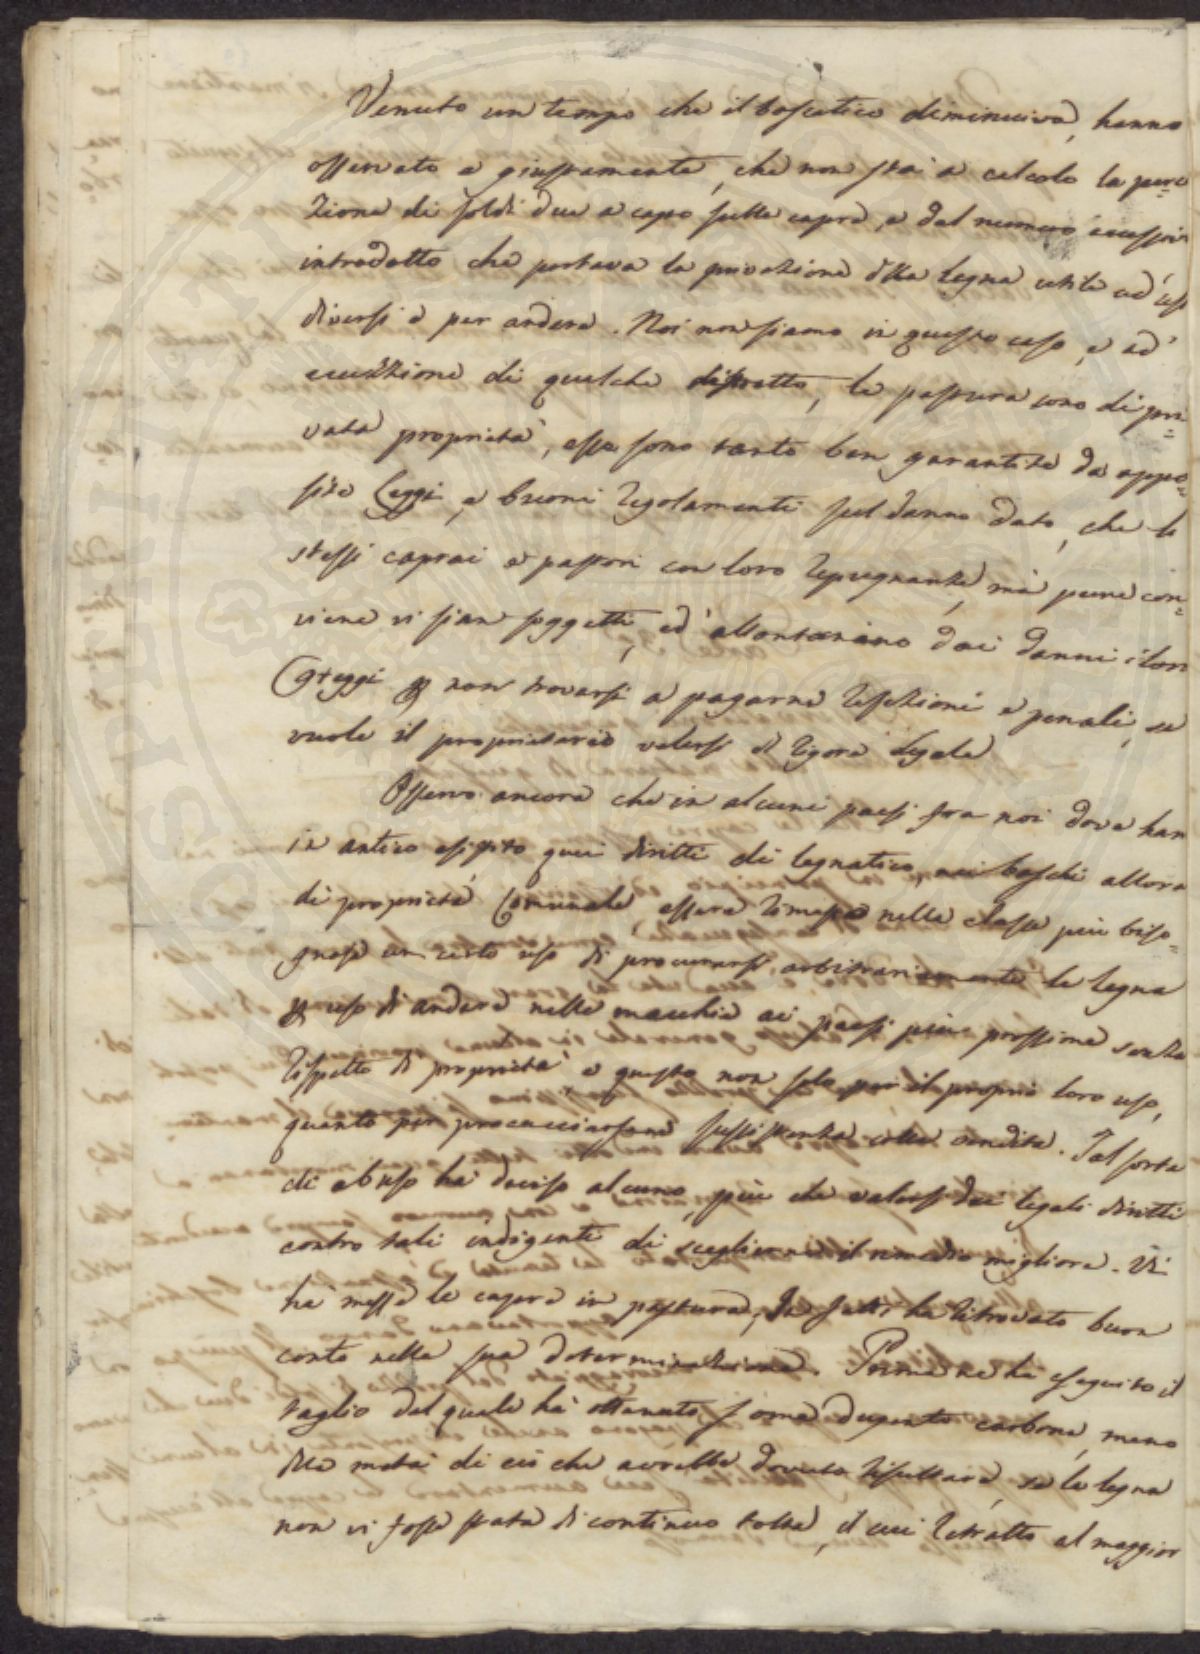 Venuto un tempo che il boscatico diminuiva, hanno
osservato e giustamente, che non stai a calcolo la perc=
zione di soldi due a capo sulle capre, e dal numero eccessivo
introdotto che portava la privazione della legna utile ad usi
diversi e per ardere. Noi non siamo in questo caso, e ad
eccezzione di qualche distretto, le pasture sono di pri=
vata proprietà, esse sono tanto ben garantite da appo=
site Leggi, e buoni regolamenti sul danno dato, che li
stessi caprai e pastori con loro repugnanza, mà pure con=
viene vi sian soggetti, ed allontanino dai danni i loro
Greggi per non trovarsi a pagarne refezioni e penali, se
vuole il proprietario valersi di rigore Legale
Osservo ancora che in alcuni paesi fra noi dove han
in antico esistito quei diritti di legnatico, nei boschi allora
di proprietà Comunale, essere rimasto nella classe più biso=
gnosa un certo uso di procurarsi arbitrariamente le legna
per uso di ardere nelle macchie ai paesi più prossime senza
rispetto di proprietà e questo non solo per il proprio loro uso,
quanto per procacciarsene sussistenza colla vendita. Tal sorta
di abuso hà deciso alcuno, più che valersi dei legali diritti
contro tali indigenti di scegliere il rimedio migliore. Vi
hà messe le capre in pastura, In fatti ha ritrovato buon
conto nella sua determinazione. Prima ne hà eseguito il
taglio dal quale hà ottenuto some dugento carbone, meno
della metà di ciò che avrebbe dovuto risultare, se la legna
non vi fosse stata di continuo tolta, il cui ritratto al maggior